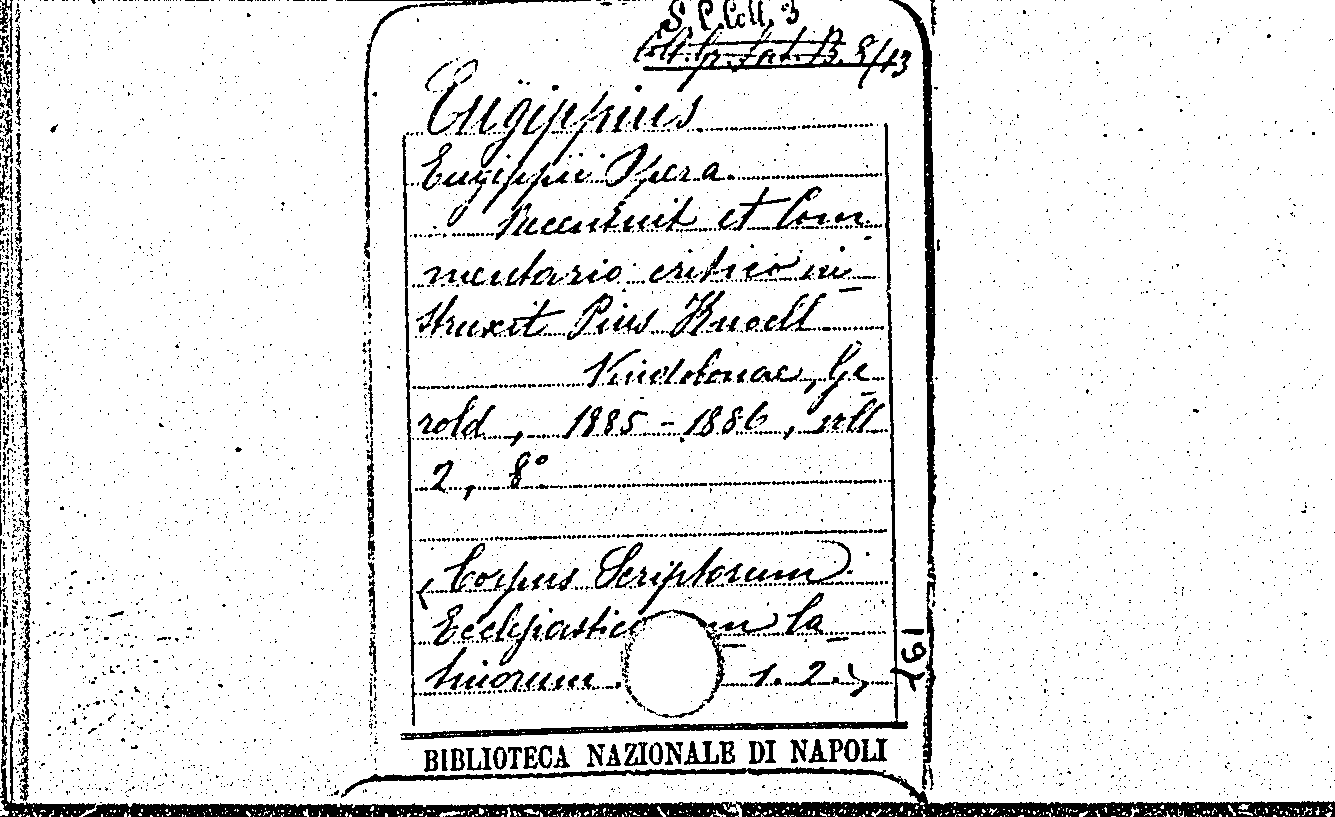 S. C. Coll. 3
Coll. Gr. Lat. B. 8/13
Eugippius
Eugippii Opera.
Recensuit et Com
mentario critico in_
struxit Pius Knoell
Vindobonae, Ge_
rold, 1885-1886, voll
2, 8°
(Corpus Scriptorum
Ecclesiastic um La_
tinorum. 1. 2.)
BIBLIOTECA NAZIONALE DI NAPOLI